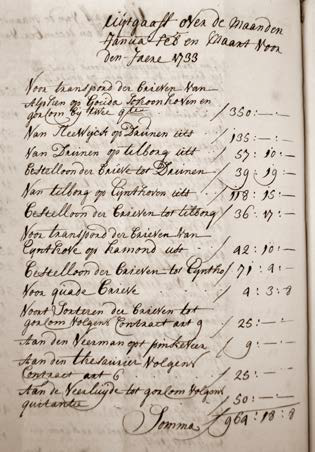 uijtgaaft over de Maanden
Janua: feb en Maart Voor
den Jaere 1733
Voor transpord der brieven Van
Alphen op Gouda Schoonhoven en
gorcom bij twee qte / 350 : — : —
Van Heewijck op Drunen uts / 135 : — : —
Van Drunen op tilborg uts / 57 : 10 : —
bestelloon der brieve tot Drunen / 39 : 19 : —
Van tilborg op Eynthoven uts / 118 : 15 : —
bestelloon der brieven tot tilborg / 36 : 17 : —
Voor transpord der brieven Van
Eynthove op hamond uts / 42 : 10 : —
bestelloon der brieven tot Eyntho / 71 : 4 : —
Voor quade brieve / 4 : 3 : 8
Voort Sorteren der brieven tot
gorcom Volgens Contract art 9 / 25 : — : —
Aan den Veerman op / 9 : — : —
Aan den thesaurier Volgens
Contract art 6 / 25 : — : —
Aan de Veerluijde tot gorcom Volgens
quitantie / 50 : — : —
Somma / 964 : 18 : 8